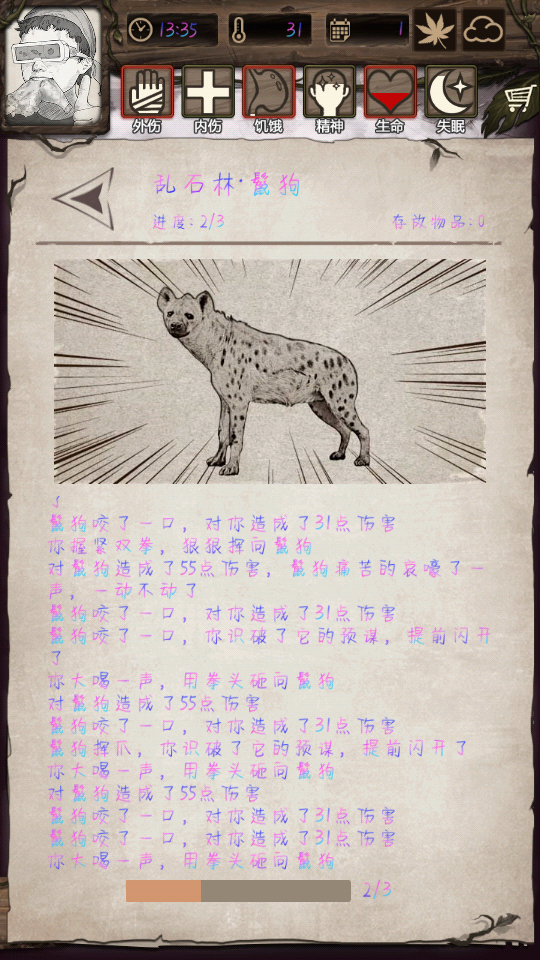 13:35
31
1
外伤
内伤
饥饿
精神
生命
失眠
乱石林·鬣狗
进度:2/3
存放物品:0
鬣狗咬了一口，对你造成了31点伤害
你握紧双拳，狠狠挥向鬣狗
对鬣狗造成了55点伤害，鬣狗痛苦的哀嚎了一
声，一动不动了
鬣狗咬了一口，对你造成了31点伤害
鬣狗咬了一口，你识破了它的预谋，提前闪开
了
你大喝一声，用拳头砸向鬣狗
对鬣狗造成了55点伤害
鬣狗咬了一口，对你造成了31点伤害
鬣狗挥爪，你识破了它的预谋，提前闪开了
你大喝一声，用拳头砸向鬣狗
对鬣狗造成了55点伤害
鬣狗咬了一口，对你造成了31点伤害
鬣狗咬了一口，对你造成了31点伤害
你大喝一声，用拳头砸向鬣狗
2/3